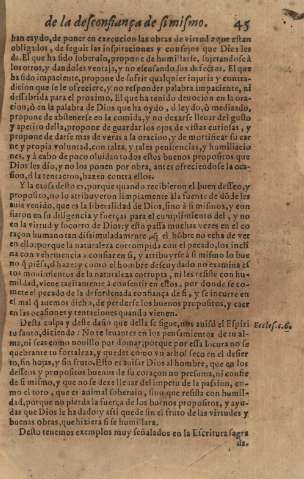 de la desconfiança de si mismo. 45
han oydo, de poner en execucion las obras de virtud aque estan
obligados, de seguir las inspiraciones y consejos que Dios les
da. El que ha sido soberuio, propone de humillarse, sujetandose à
los otros, y dandoles ventaja, y no escusando sus defectos. El que
ha sido impaciente, propone de sufrir qualquier injuria y contra-
dicion que se le ofreciere, y no responder palabra impaciente, ni
dessabrida para el proximo. El que ha tenido deuocion en la ora-
cion, ò en la palabra de Dios que ha oydo, ò leydo, ò meditando,
propone de abstenerse en la comida, y no dexarse lleuar del gusto
y apetito della, propone de guardar los ojos de vistas curiosas, y
propone de darse mas de veras a la oracion, y de mortificar su car
ne y propia voluntad, con tales, y tales penitencias, y humiliacio
nes, y à cabo de poco oluidan todos estos buenos propositos que
Dios les dio, y no los ponen por obra, antes ofreciendose la oca-
sion, ò la tentacion, hazen contra ellos.
Y la causa desto es, porque quando recibieron el buen desseo, y
proposito, no lo atribuyeron limpiamente à la fuente de dòde les
auia venido, que es la liberalidad de Dios, sino à si mismos, y con
fiaron en su diligencia y fuerças para el cumplimiento del, y no
en la virtud y socorro de Dios; y esto passa muchas vezes en el co
raçon humano tan dissimuladamente, q̃ el hõbre no echa de ver
en ello: porque la naturaleza corrompida con el pecado, los inclina
con vehemencia a confiar en si, y atribuyrse à si mismo lo bue
no q̃ piẽsa, q̃ haze: y como el hombre descuydado no examina es
tos mouimientos de la naturaleza corrupta, ni les resiste con hu-
mildad, viene tacitamente à consentir en ellos, por donde se co-
mete el pecado de la desordenada confiança de si, y se incurre en
el mal q̃ auemos dicho, de perderse los buenos propositos, y caer
en las ocasiones y tentaciones quando vienen.
Desta culpa y deste daño que della se sigue, nos auisò el Espiri
tu santo, diziendo: No te leuantes en los pensamientos de tu al-
ma, ni seas como nouillo por domar, porque por essa locura no se
quebrante tu fortaleza, y quedes como vn arbol seco en el desier-
to, sin hojas, y sin fruto. Esto es auisar Dios al hombre, que en los
desseos y propositos buenos de su coraçon no presuma, ni confie
de si mismo, y que no se dexe lleuar del impetu de la passion, co-
mo el toro, que es animal soberuio, sino que resista con humil-
dad, porque no pierda la fuerça de los buenos propositos, y ayu-
das que Dios le ha dado y assi quede sin el fruto de las virtudes y
buenas obras, que hiziera si se humillara.
Desto tenemos exemplos muy señalados en la Escritura sagra
da.
Eccles. c. 6.